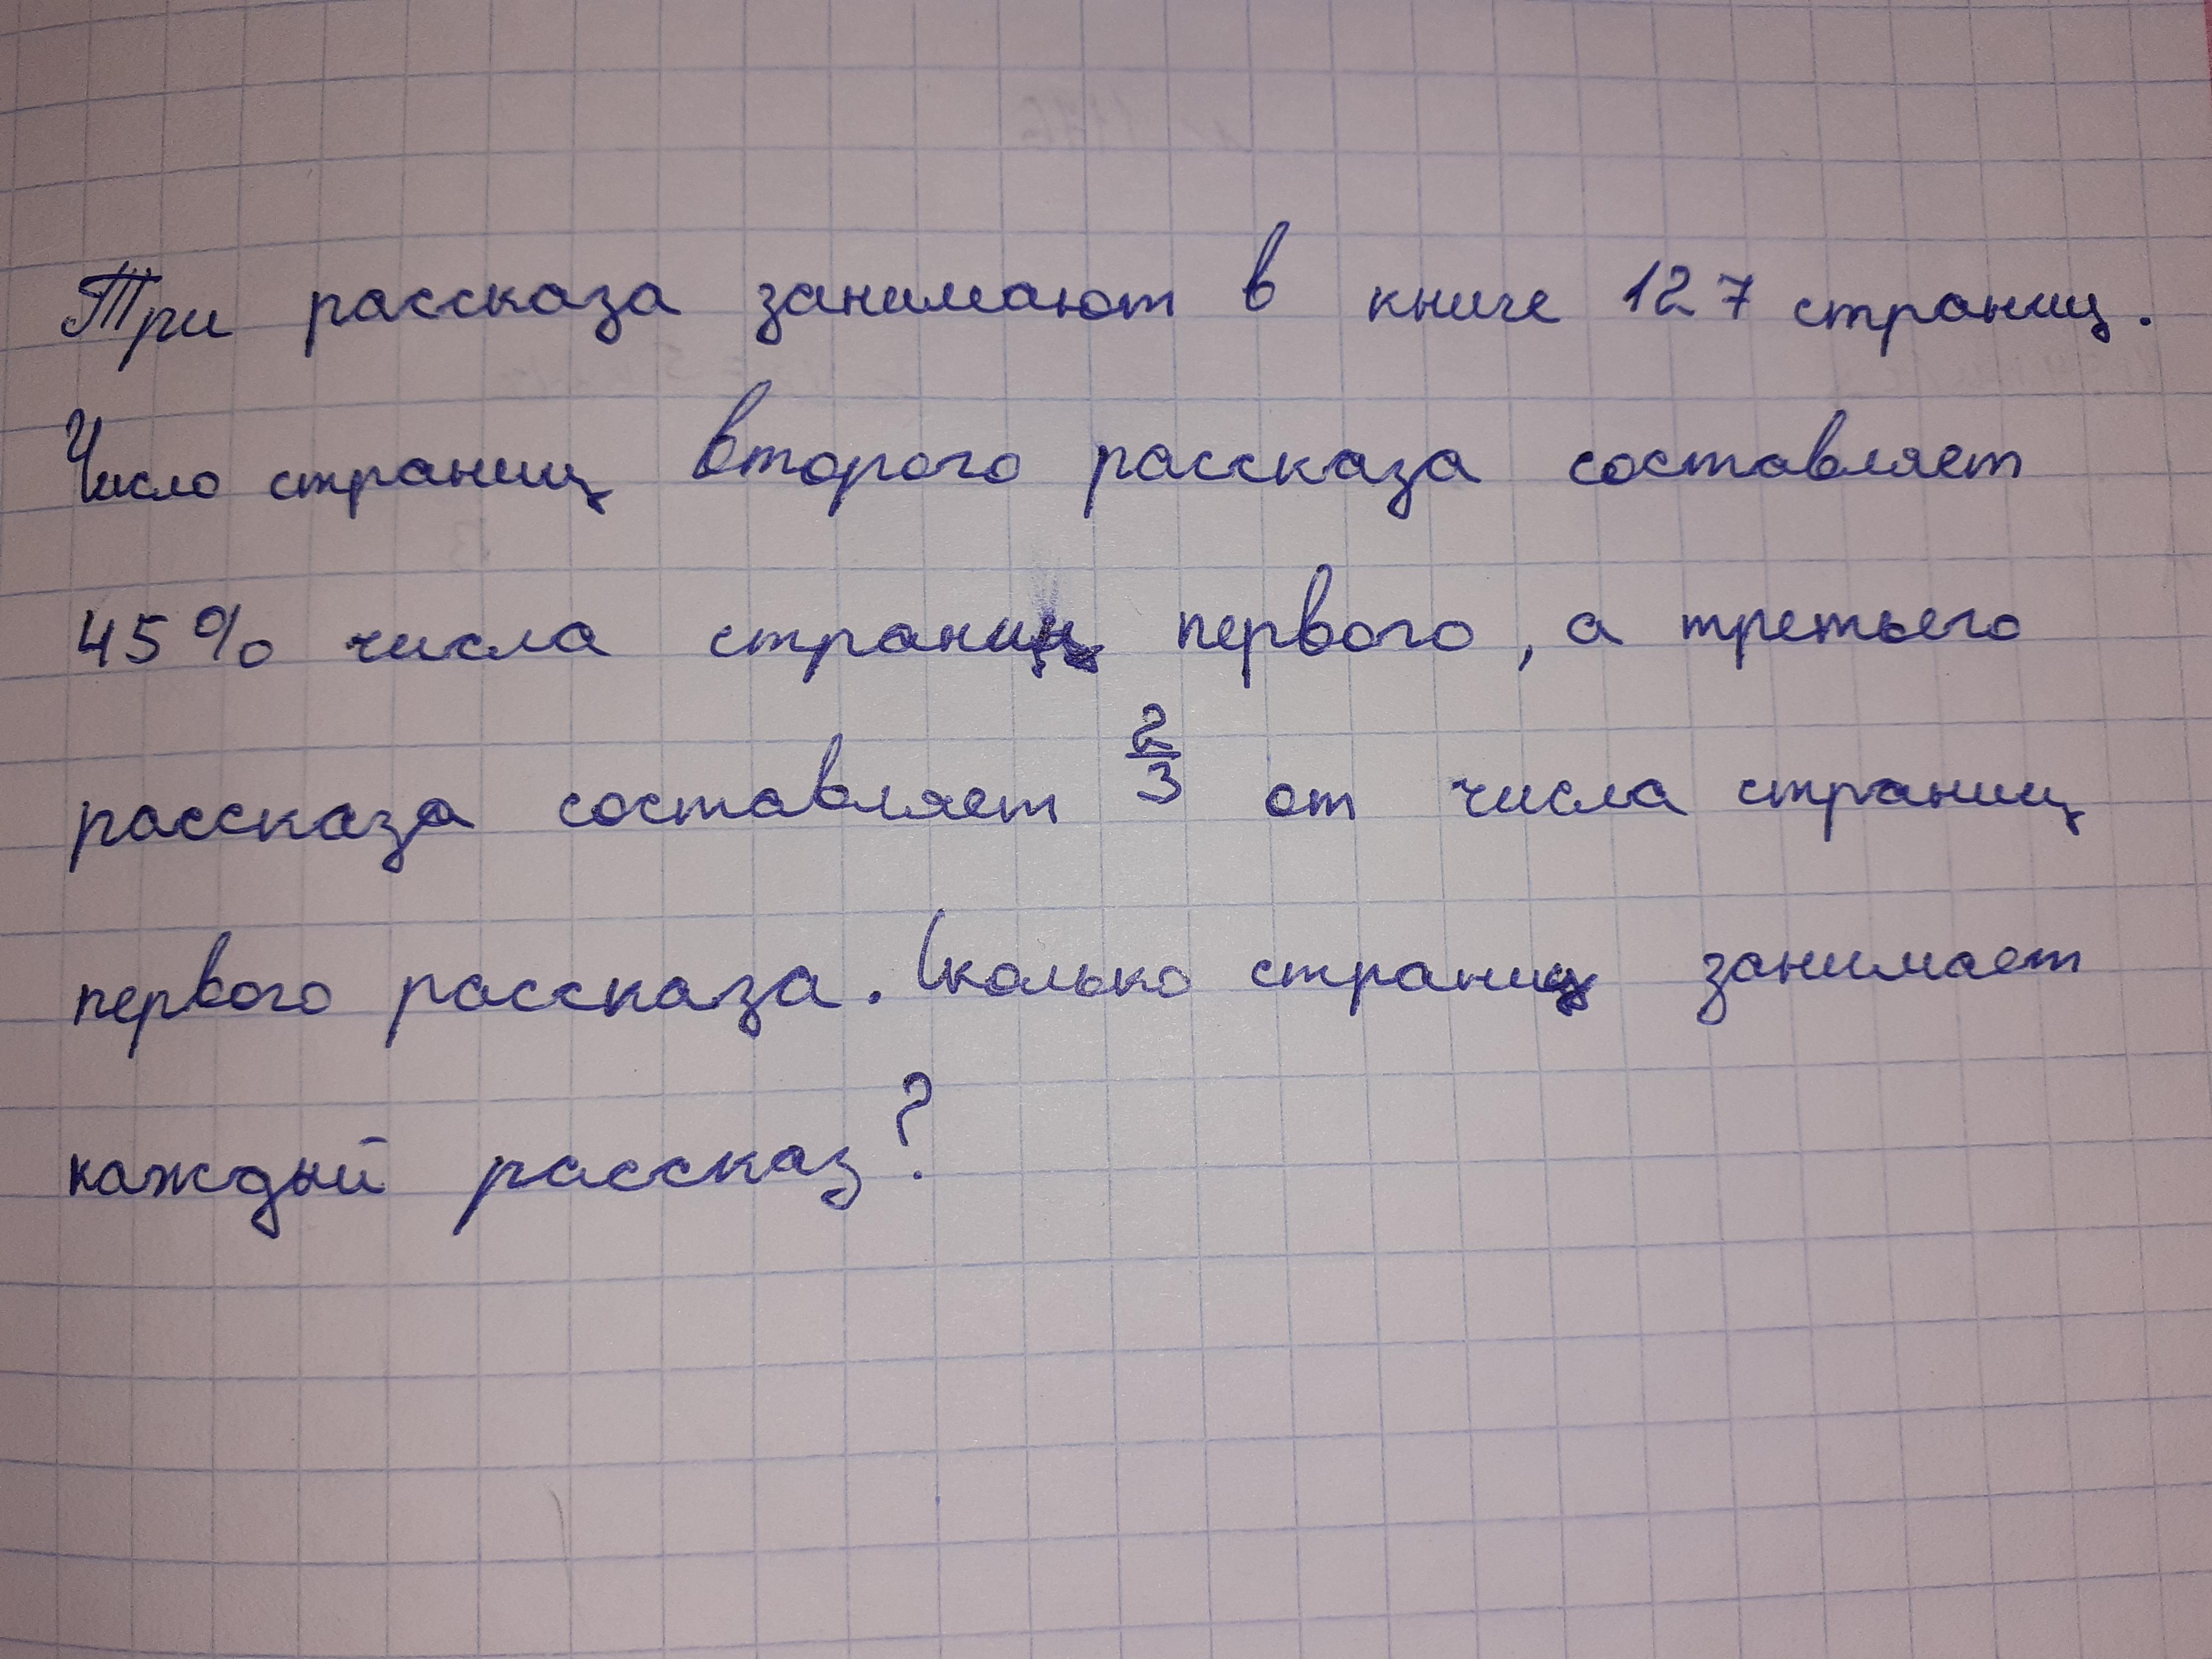 Три рассказа занимают в книге 127 страниц.
Число страниц второго рассказа составляет
45% числа страниц первого, а третьего
рассказа составляет 2/3 от числа страниц
первого рассказа. Сколько страниц занимает
каждый рассказ?